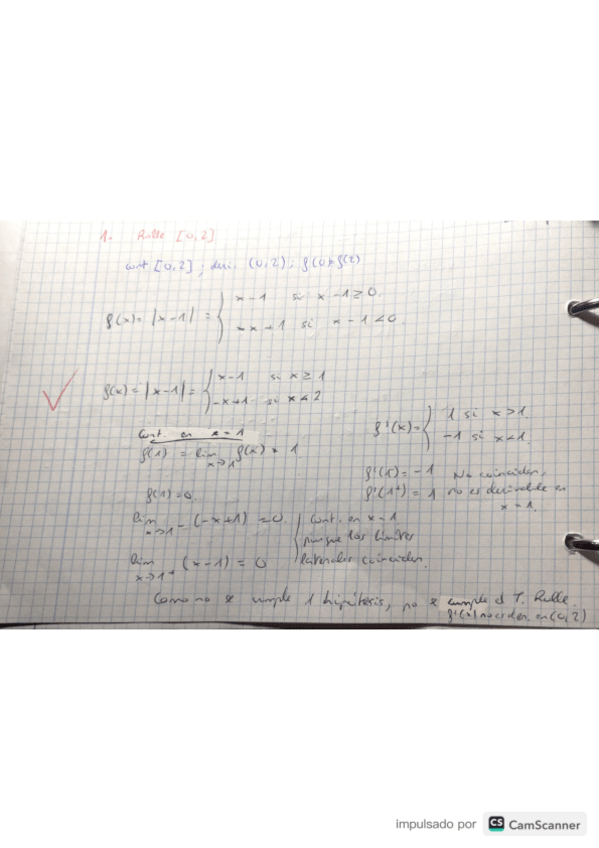 1. Rolle [0,2]
cont [0,2] ; deri. (0,2) ; f(0)=f(2)
f(x)= |x-1| = { x-1 si x-1≥0.
-x+1 si x-1<0.
f(x)= |x-1| = { x-1 si x≥1
-x+1 si x<2
Cont. en x=1
f(1) = lim x→1 f(x) x 1
f(1)=0.
lim x→1- (-x+1) = 0. } Cont. en x=1
porque los límites
lim x→1+ (x-1) = 0 laterales coinciden.
f'(x)= { 1 si x>1.
-1 si x<1.
f'(1-) = -1 No coinciden,
f'(1+) = 1 no es derivable en
x=1.
Como no se cumple 1 hipótesis, no se cumple el T. Rolle.
f'(x) no es der. en (0,2)
impulsado por CS CamScanner